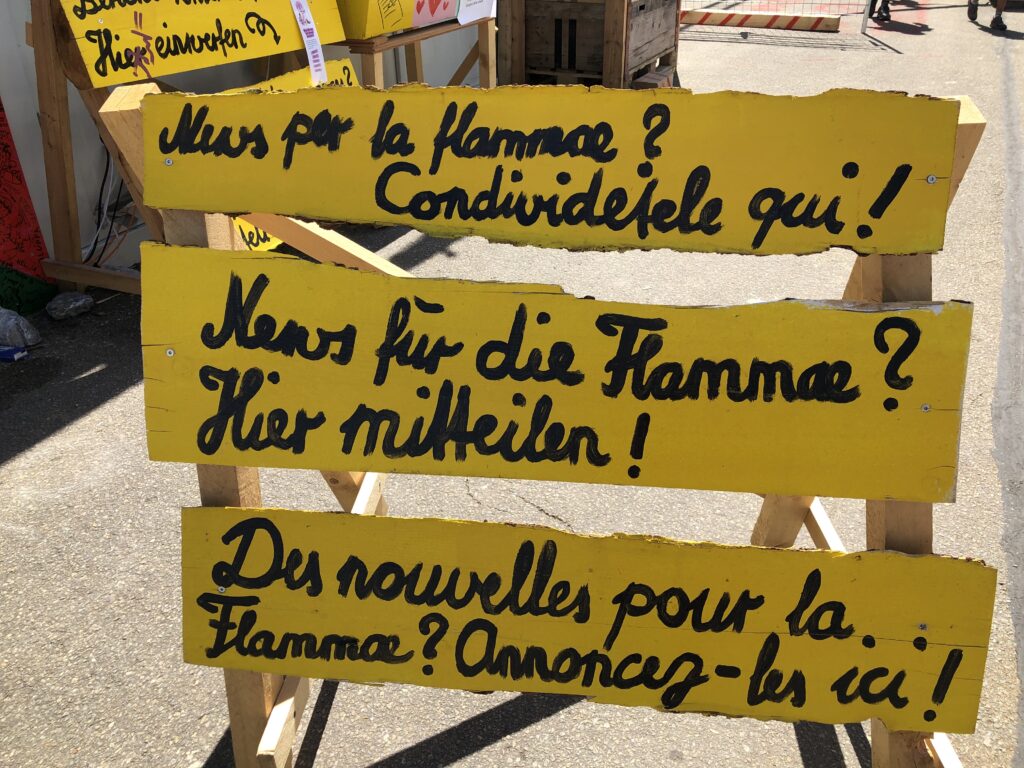 Hier einwerfen
News per la flammae?
Condividetele qui!
News für die Flammae?
Hier mitteilen!
Des nouvelles pour la
Flammae? Annoncez-les ici!